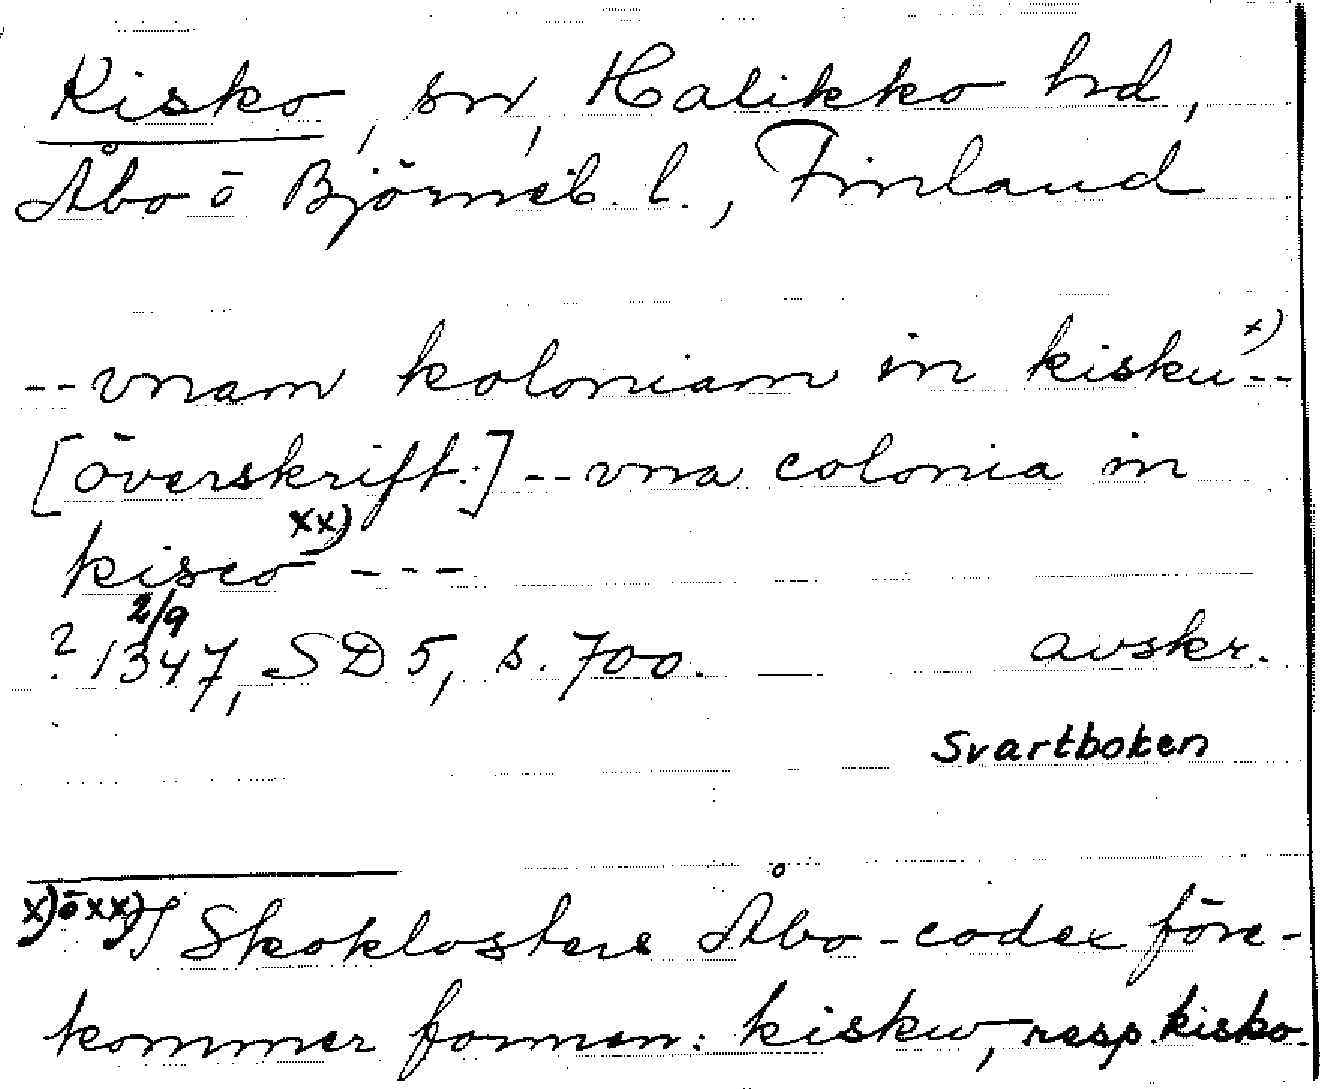 Kisko, sn, Halikko hd,
Åbo o Björneb. l., Finland
--vnam koloniam in kisku x)--
[överskrift.] --vna colonia in
kisco xx) ---
? 1347 2/9, SD 5, s. 700. avskr.
Svartboken
x) o xx) I Skoklosters Åbo-codex före-
kommer formen: kiskw, resp. kisko.